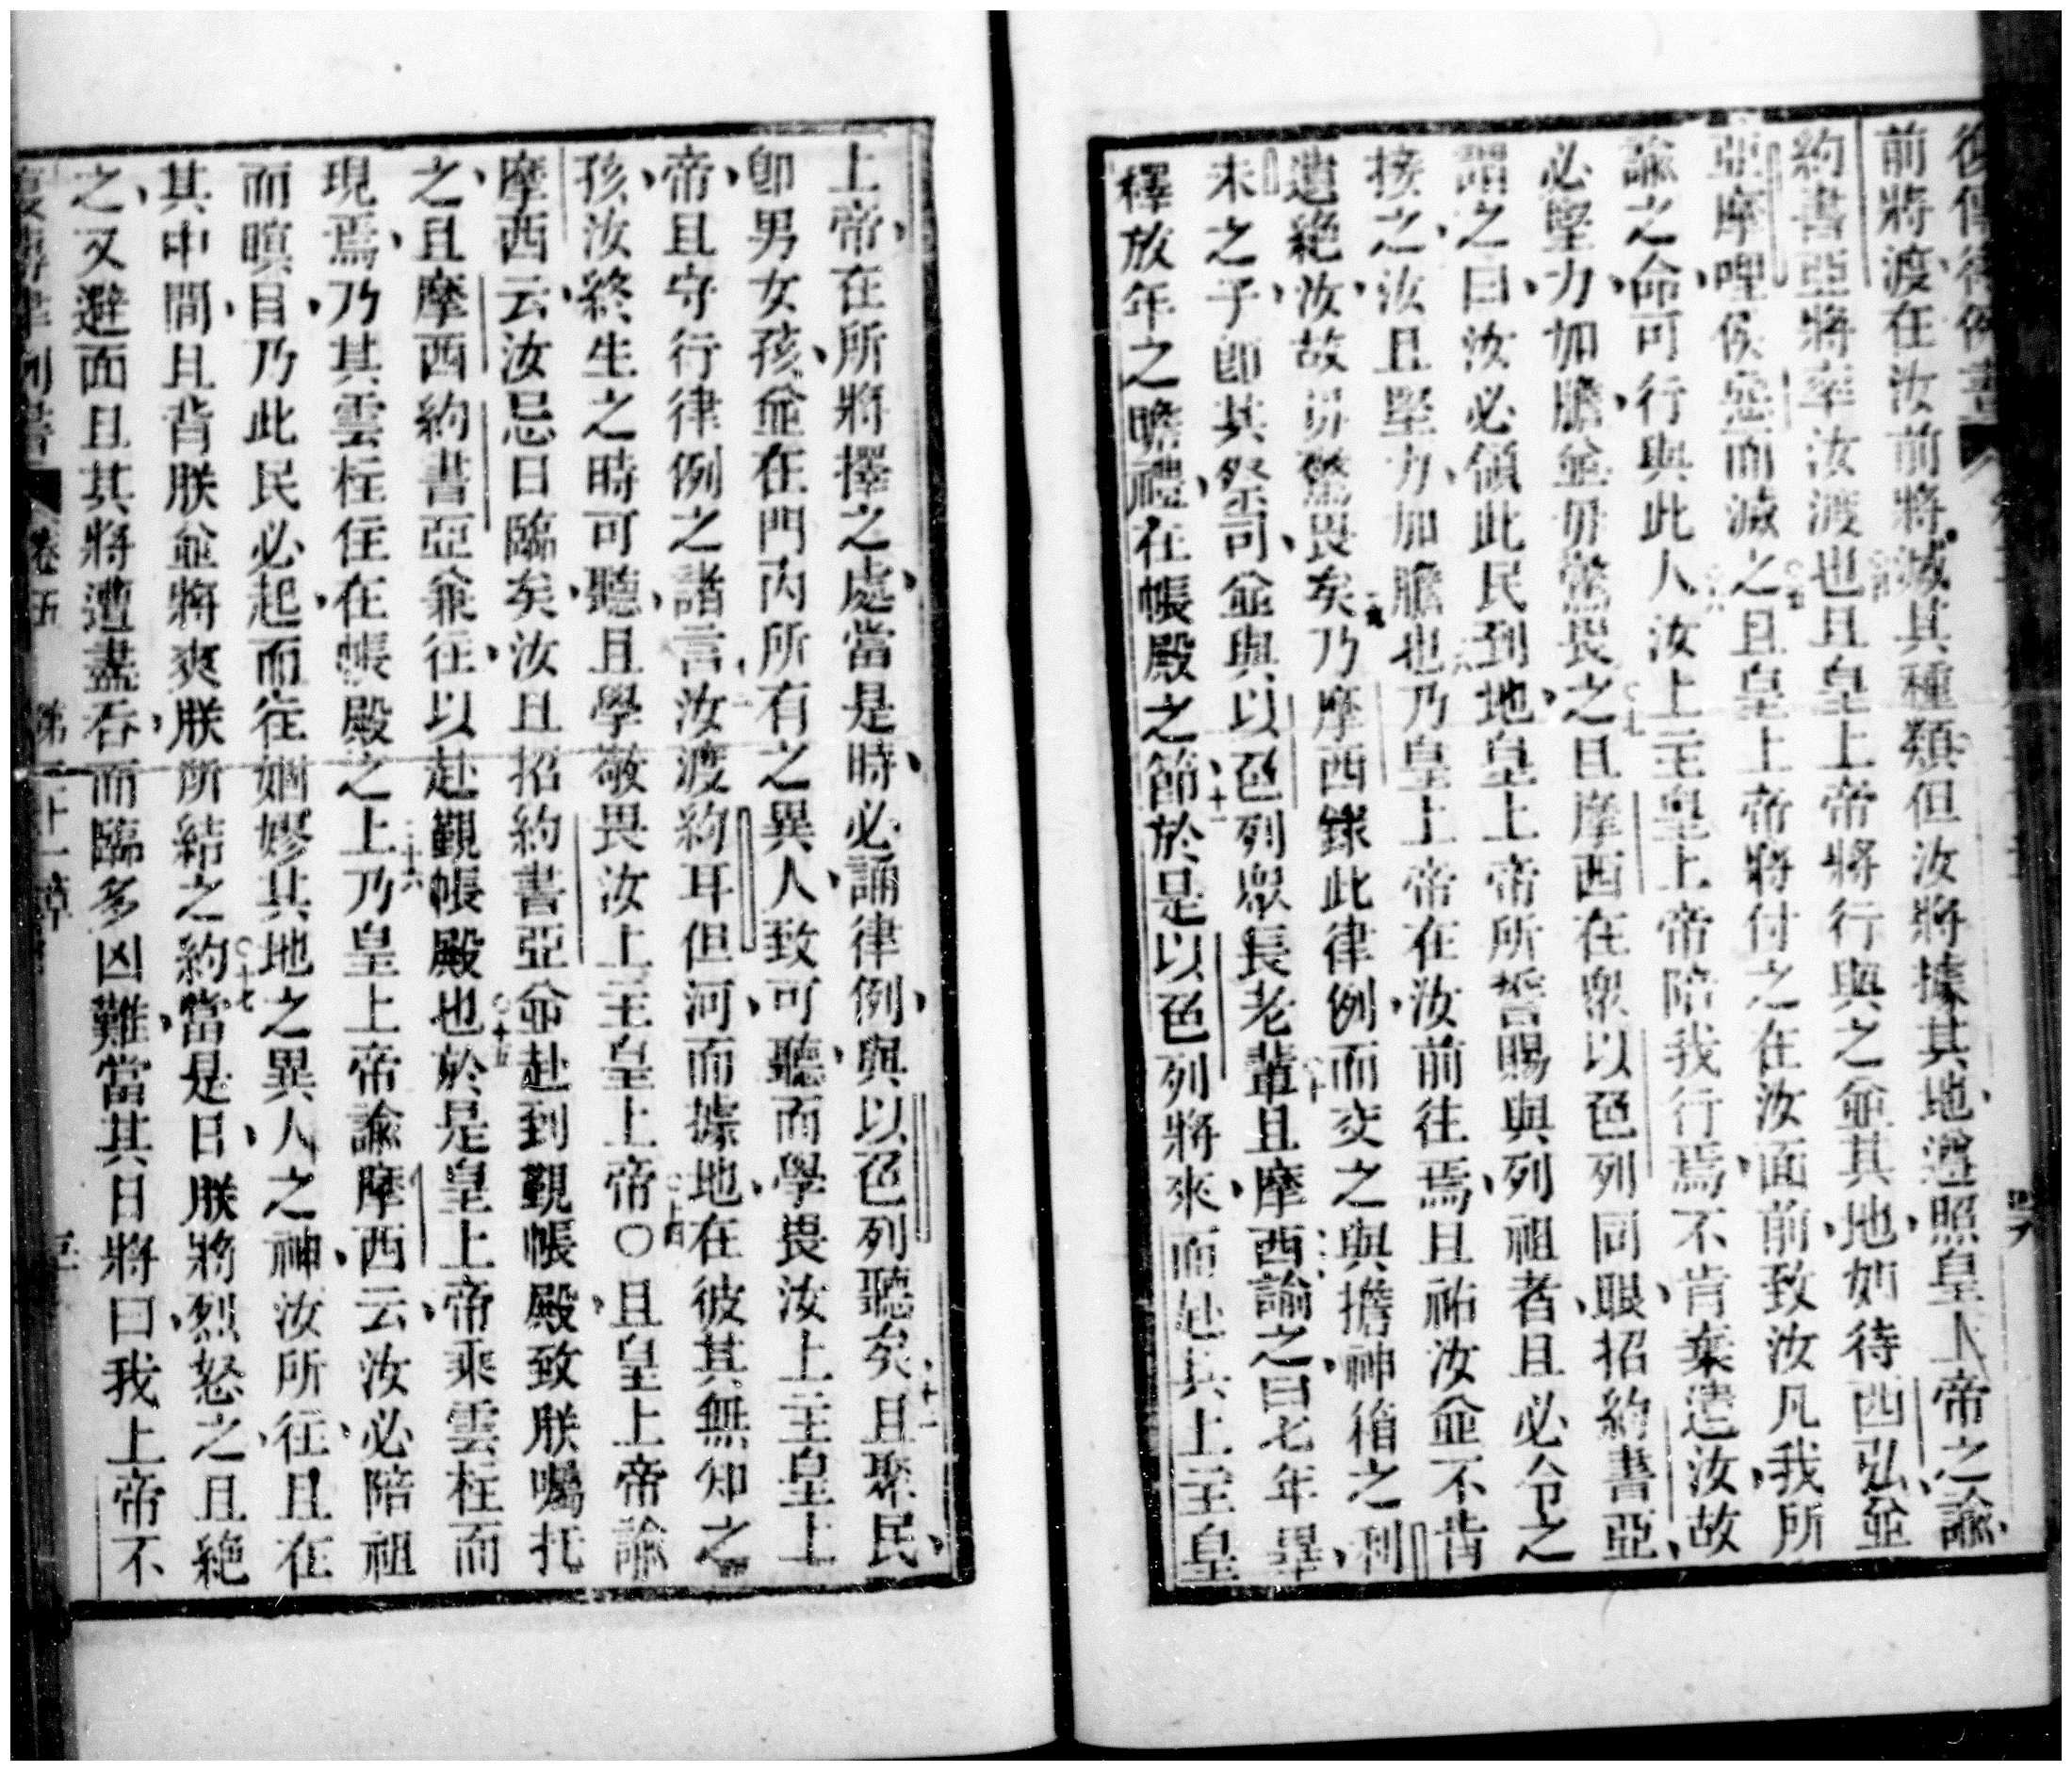 復傳律例書
前將渡在汝前將滅其種類但汝將據其地遵照皇上帝之諭
約書亞將率汝渡也且皇上帝將行與之並其地如待西弘並
亞摩哩侯而滅之且皇上帝將付之在汝面前致汝凡我所
諭之命可行與此人汝上主皇上帝陪我行焉不肯棄遺汝故
必堅力加膽並毋驚畏之且摩西在衆以色列同眼招約書亞
謂之曰汝必領此民到地皇上帝所誓賜與列祖者且必令之
接之汝且堅力加膽也乃皇上帝在汝前往焉且祐汝並不肯
遺絕汝故毋驚畏矣乃摩西錄此律例而交之與擔神箱之利
未之子卽其祭司並與以色列衆長老輩且摩西諭之曰七年畢
釋放年之瞻禮在帳殿之節於是以色列將來而赴其上主皇
上帝在所將擇之處當是時必誦律例與以色列聽矣且聚民
卽男女孩並在門內所有之異人致可聽而學畏汝上主皇上
帝且守行律例之諸言汝渡約耳但河而據地在彼其無知之
孩汝終生之時可聽且學敬畏汝上主皇上帝〇且皇上帝諭
摩西云汝忌日臨矣汝且招約書亞並赴到覲帳殿致朕囑托
之且摩西約書亞兼往以赴覲帳殿也於是皇上帝乘雲柱而
現焉乃其雲柱住在帳殿之上乃皇上帝諭摩西云汝必陪祖
而暝目乃此民必起而往姻嫪其地之異人之神汝所往且在
其中間且背朕並將爽朕所結之約當是日朕將烈怒之且絕
之又避面且其將遭盡吞而臨多凶難當其日將曰我上帝不
復傳律例書 卷五 第三十一章